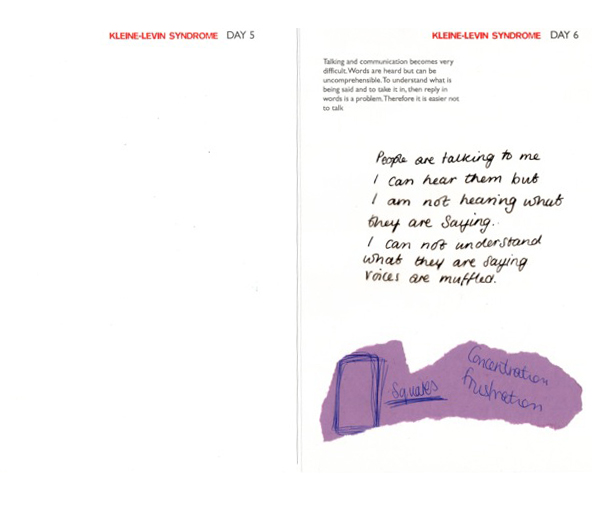 KLEINE-LEVIN SYNDROME DAY 5
KLEINE-LEVIN SYNDROME DAY 6
Talking and communication becomes very
difficult. Words are heard but can be
uncomprehensible. To understand what is
being said and to take it in, then reply in
words is a problem. Therefore it is easier not
to talk
People are talking to me
I can hear them but
I am not hearing what
they are saying.
I can not understand
what they are saying
voices are muffled.
Squares
Concentration
frustration